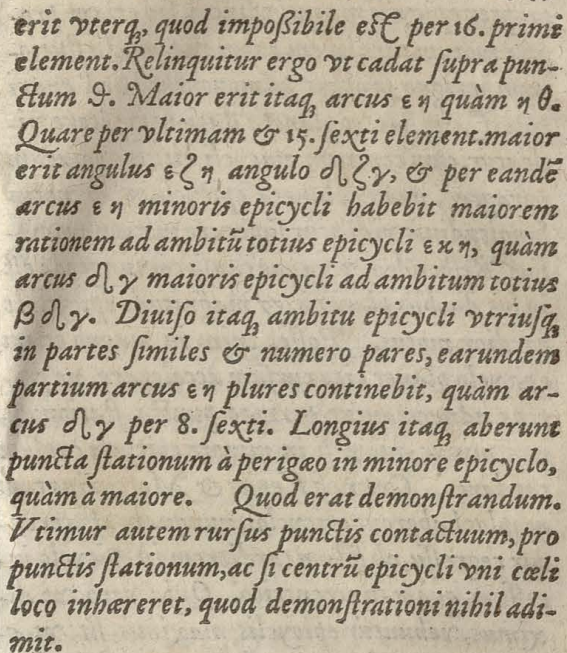 erit vterq;, quod impoßibile est per 16. primi
element. Relinquitur ergo vt cadat ſupra pun-
ctum ϑ. Maior erit itaq; arcus ε η quàm η θ.
Quare per vltimam & 15. ſexti element. maior
erit angulus ε ζ η angulo δ ζ γ, & per eandē
arcus ε η minoris epicycli habebit maiorem
rationem ad ambitū totius epicycli ε κ η, quàm
arcus δ γ maioris epicycli ad ambitum totius
β δ γ. Diuiſo itaq; ambitu epicycli vtriuſq;
in partes ſimiles & numero pares, earundem
partium arcus ε η plures continebit, quàm ar-
cus δ γ per 8. ſexti. Longius itaq; aberunt
puncta ſtationum à perigæo in minore epicyclo,
quàm à maiore. Quod erat demonſtrandum.
Vtimur autem rurſus punctis contactuum, pro
punctis ſtationum, ac ſi centrū epicycli vni cœli
loco inhæreret, quod demonſtrationi nihil adi-
mit.